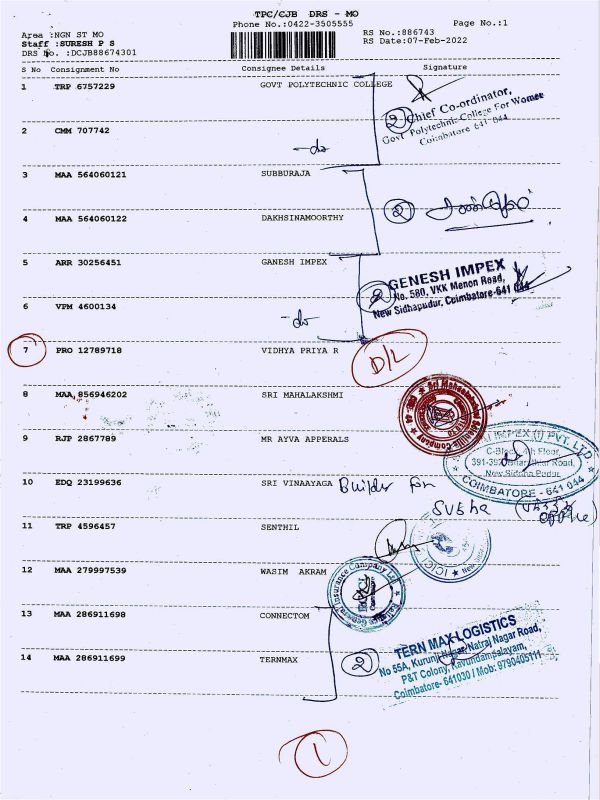 TPC/CJB DRS - MO
Phone No.:0422-3505555
Page No.:1
Area :NGN ST MO
RS No.:886743
Staff :SURESH P S
RS Date:07-Feb-2022
DRS No. :DCJB88674301
S No Consignment No Consignee Details Signature
1 TRP 6757229 GOVT POLYTECHNIC COLLEGE
2 Chief Co-ordinator,
Govt Polytechnic College For Women
Coimbatore 641 044
2 CMM 707742
-do
3 MAA 564060121 SUBBURAJA
2
4 MAA 564060122 DAKHSINAMOORTHY
5 ARR 30256451 GANESH IMPEX
2 GENESH IMPEX
No. 580, VKK Menon Road,
New Sidhapudur, Coimbatore-641 044
6 VPM 4600134
-do
7 PRO 12789718 VIDHYA PRIYA R D/L
8 MAA 856946202 SRI MAHALAKSHMI
9 RJP 2867789 MR AYVA APPERALS
IMPEX (I) PVT. LTD
C-Block, 4th Floor,
Road,
COIMBATORE - 641 044
10 EDQ 23199636 SRI VINAAYAGA Builder for
Sudha
11 TRP 4596457 SENTHIL
ICICI
12 MAA 279997539 WASIM AKRAM
Insurance Company Ltd
13 MAA 286911698 CONNECTOM
14 MAA 286911699 TERNMAX
2 TERN MAX LOGISTICS
No 55A, Kurunji Nagar, Natraj Nagar Road,
P&T Colony, Kavundampalayam,
Coimbatore- 641030 / Mob: 9790405111
1